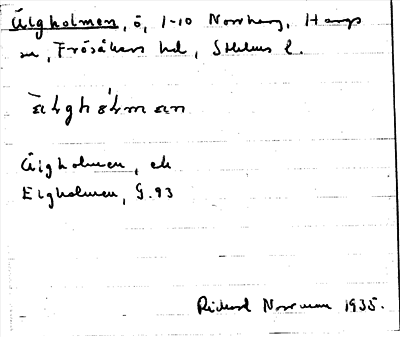 Älgholmen, ö, 1-10 Norrberg, Hargs
sn, Frösåkers hd, Sthlms l.
Älgholmen, ek
Elgholmen, G.93
Rickard Norrman 1935.